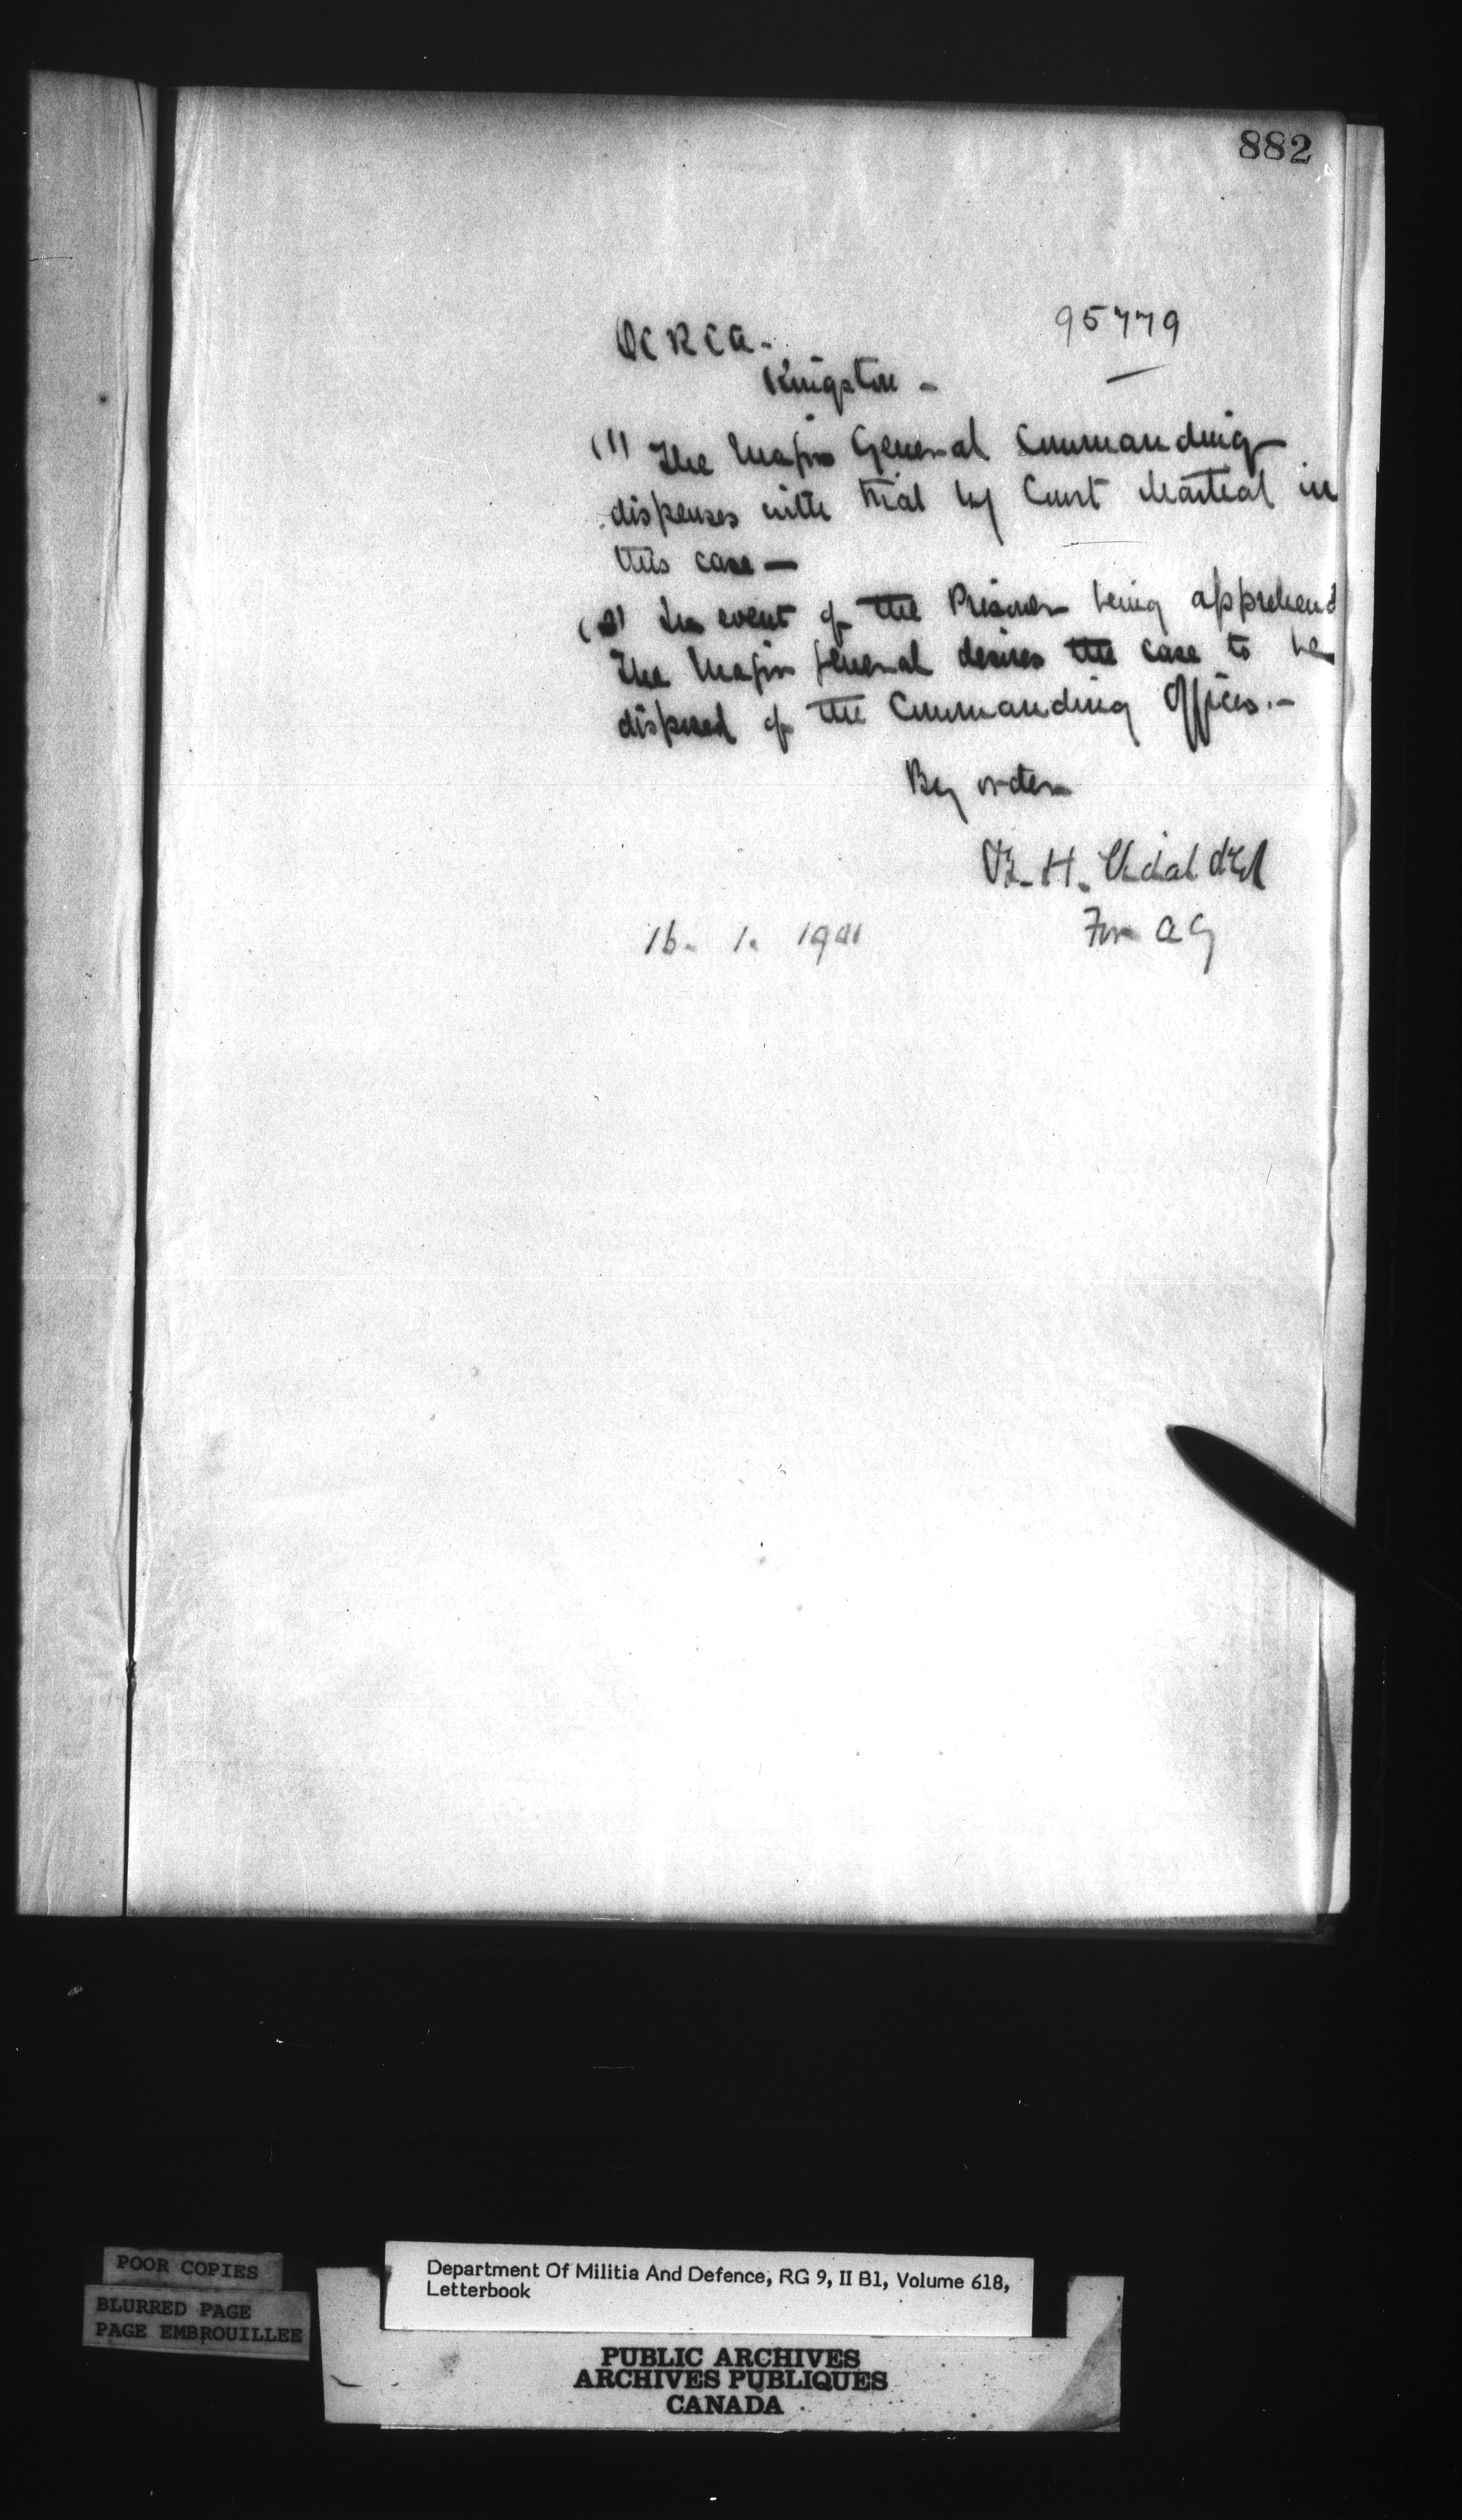 882
95779
OC RCA.
Kingston -
(1) The Major General Commanding
dispenses with trial by Court Martial in
this case —
(2) In event of the Prisoner being apprehend
The Major General desires the case to be
disposed of the Commanding Officer. -
By order
H. Vidal
For AG
16. 1. 1901
POOR COPIES
BLURRED PAGE
PAGE EMBROUILLEE
Department Of Militia And Defence, RG 9, II B1, Volume 618,
Letterbook
PUBLIC ARCHIVES
ARCHIVES PUBLIQUES
CANADA